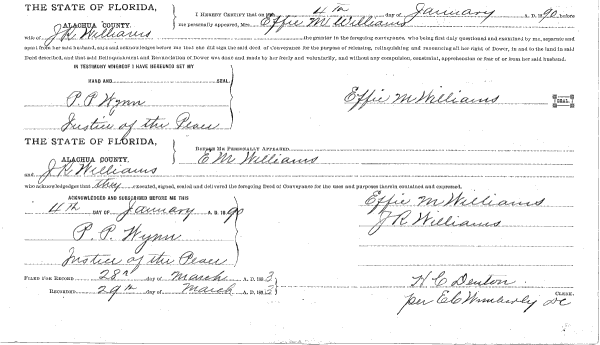 THE STATE OF FLORIDA,
ALACHUA COUNTY.
I HEREBY CERTIFY that on this 4th day of January A. D. 1890 before
me personally appeared, Mrs. Effie M Williams
wife of J R Williams the grantor in the foregoing conveyance, who being first duly questioned and examined by me, separate and
apart from her said husband, says and acknowledges before me that she did sign the said deed of Conveyance for the purpose of releasing, relinquishing and renouncing all her right of Dower, in and to the land in said
Deed described, and that said Relinquishment and Renunciation of Dower was done and made by her freely and voluntarily, and without any compulsion, constraint, apprehension or fear of or from her said husband.
IN TESTIMONY WHEREOF I HAVE HEREUNTO SET MY
HAND AND SEAL.
P. P Wynn
Justice of the Peace
Effie M Williams SEAL
THE STATE OF FLORIDA,
ALACHUA COUNTY.
BEFORE ME PERSONALLY APPEARED
E M Williams
and J R Williams
who acknowledges that they executed, signed, sealed and delivered the foregoing Deed of Conveyance for the uses and purposes therein contained and expressed.
ACKNOWLEDGED AND SUBSCRIBED BEFORE ME THIS
4th DAY OF January A. D. 1890
P. P. Wynn
Justice of the Peace
Effie M Williams
J R Williams
FILED FOR RECORD 28th day of March A. D. 1893
RECORDED 29th day of March 1893
H C Denton
CLERK.
per E C Wimberly DC